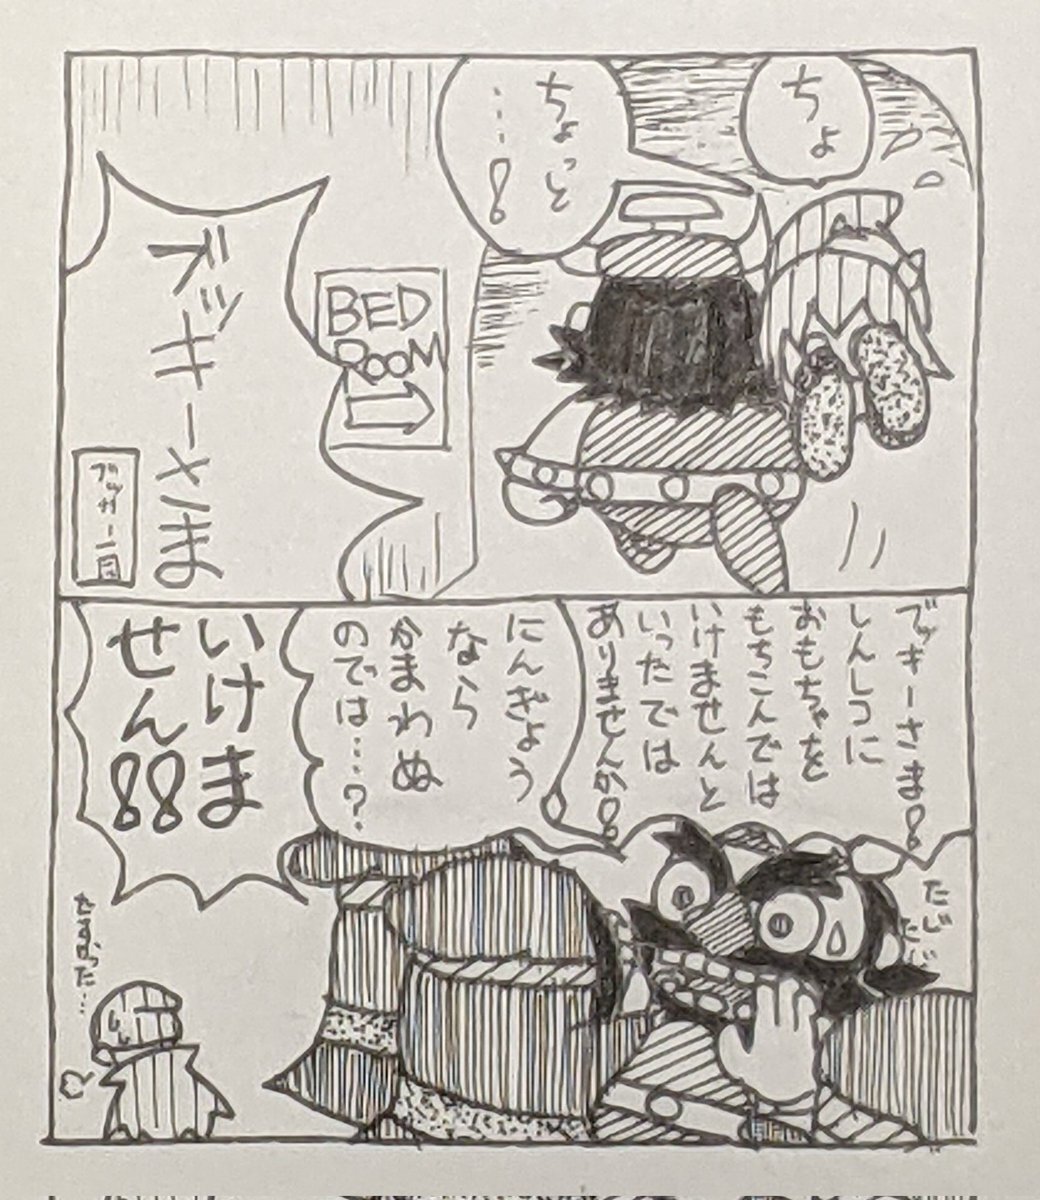 ちょ
ちょっと
…!
BED
ROOM
ブッキーさま
ブッキーさま!
しんしつに
おもちゃを
もちこんでは
いけませんと
いったでは
ありませんか!
にんぎょう
なら
かまわぬ
のでは…?
いけま
せん!!
たじ
たじ